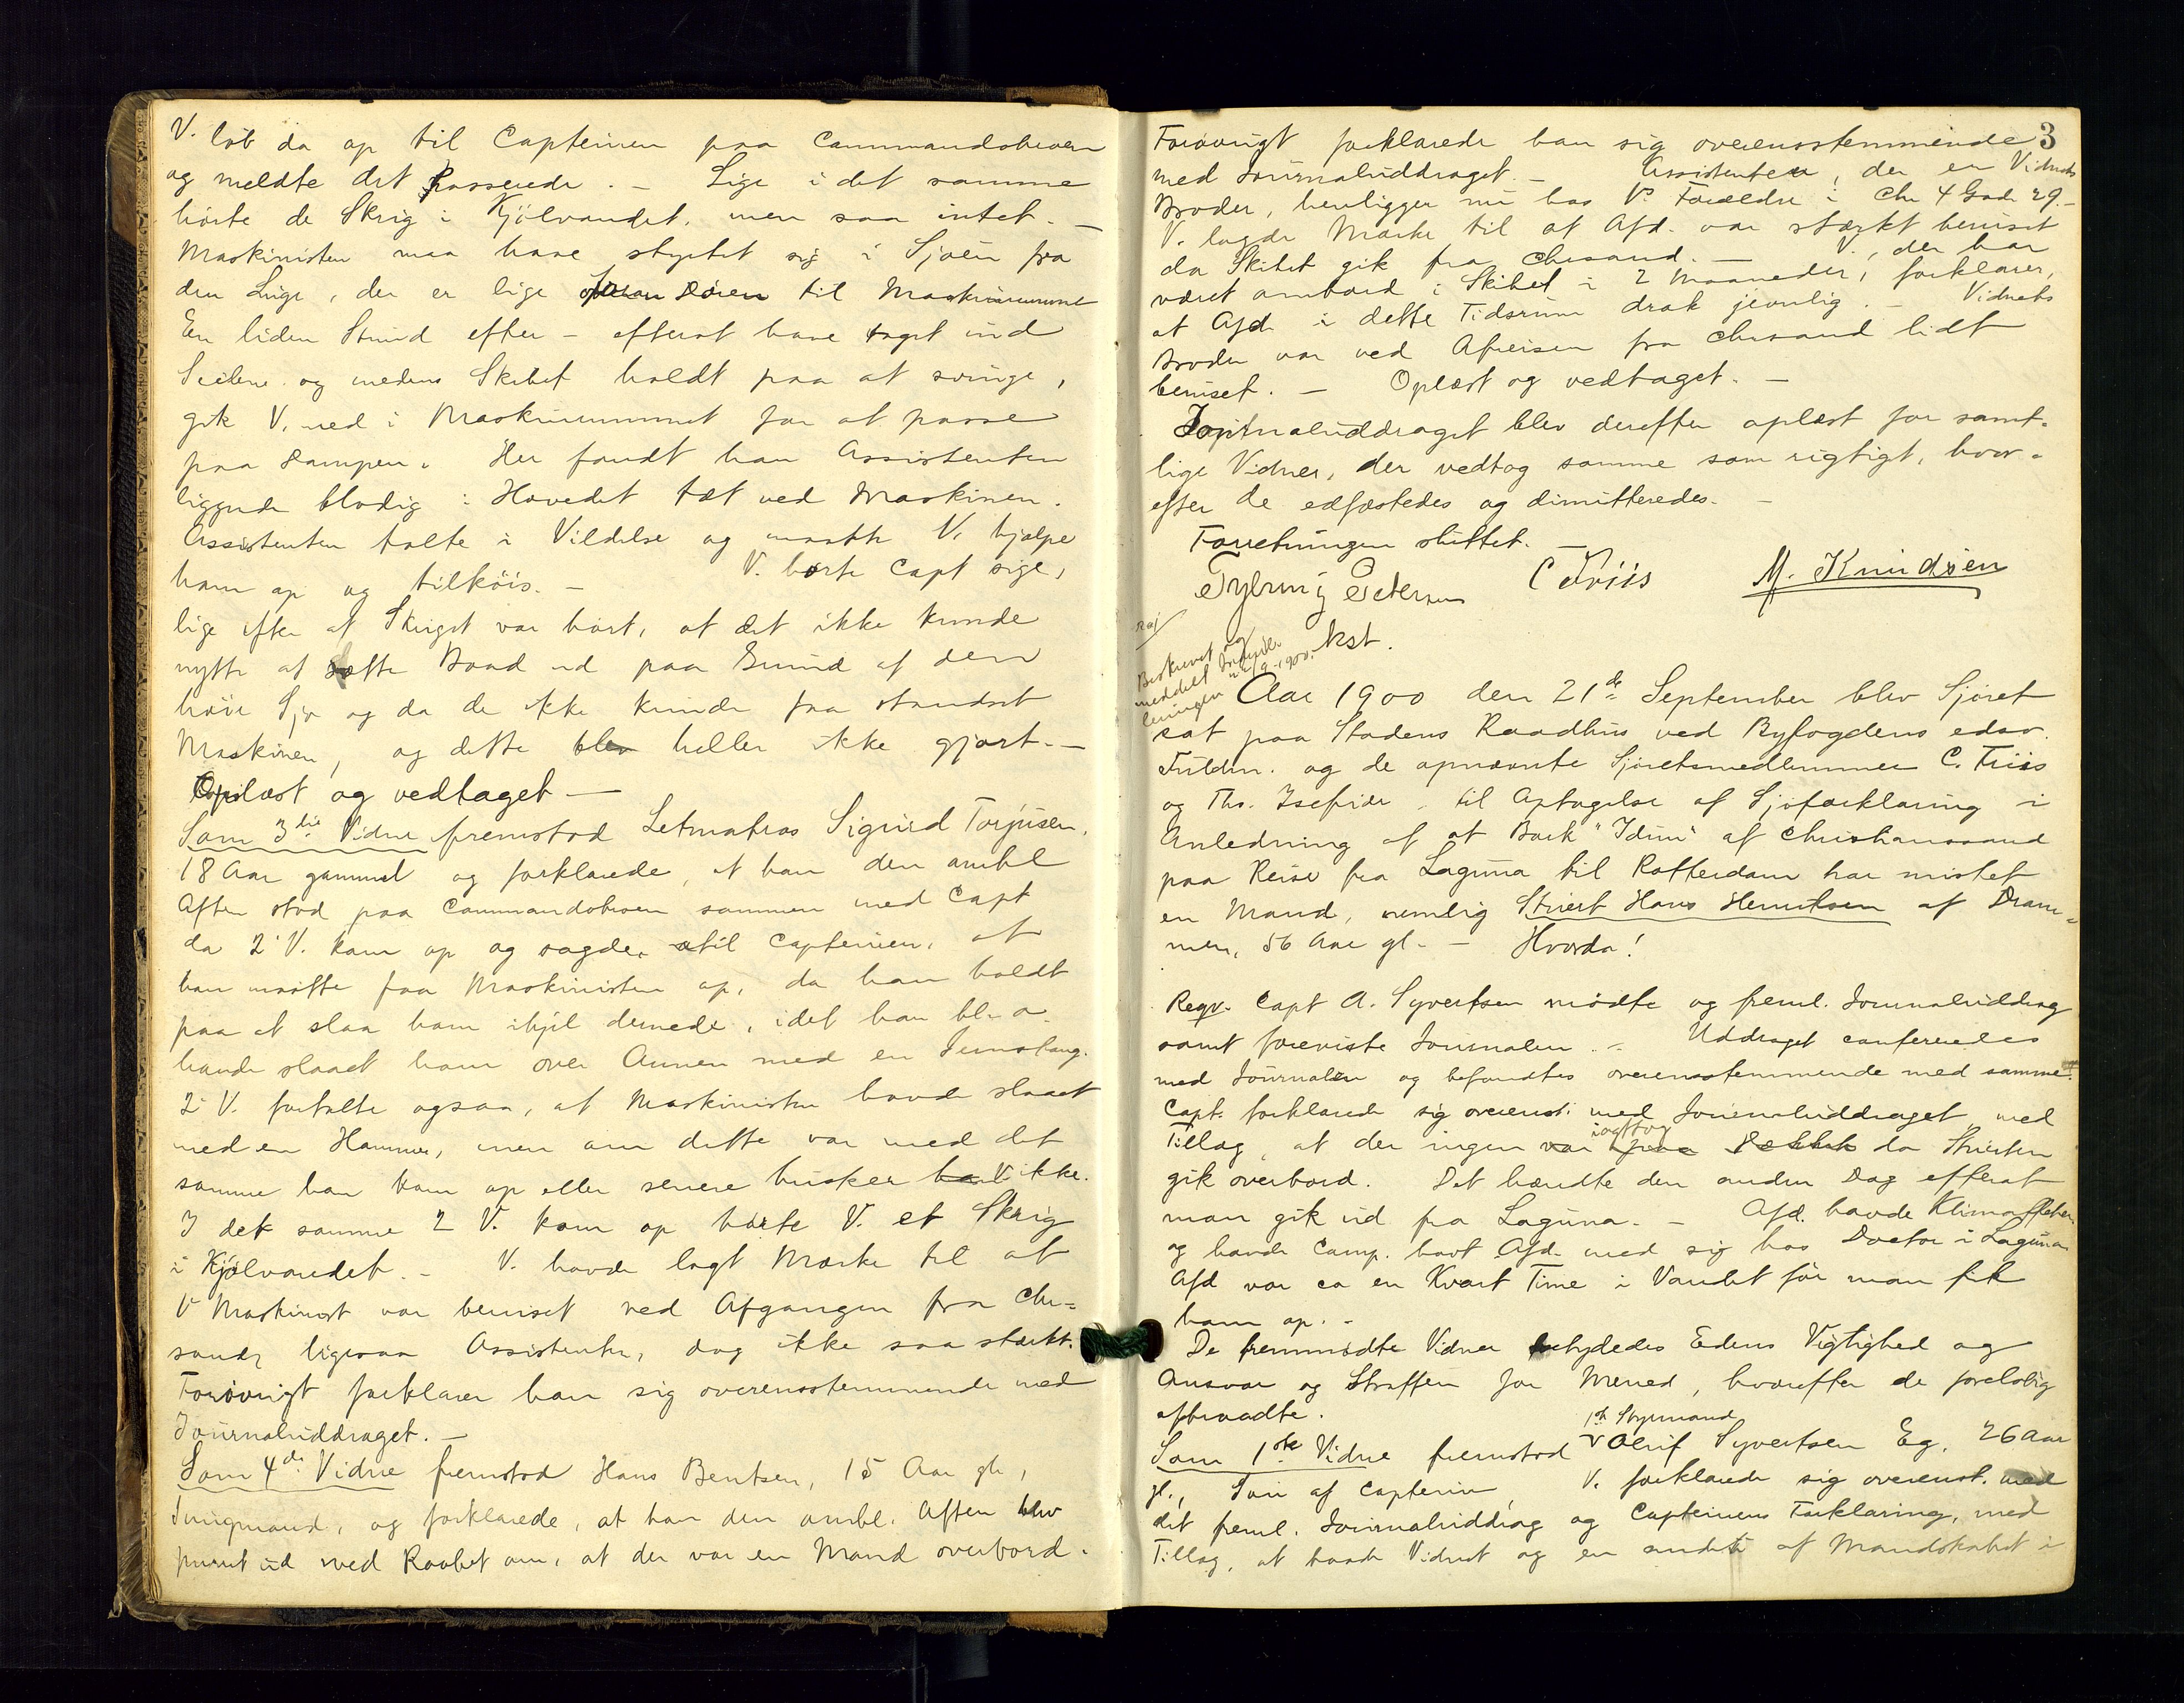 V. løb da op til Capteinen paa Commandobroen
og meldte det Passerede. — Lige i det samme
hörte de Skrig i Kjölvandet, men saa intet. —
Maskinisten maa have styrtet sig i Sjøen fra
den Luge, der er lige foran Døren til Maskinrummet
En liden Stund efter — efterat have taget ind
Seilene og medens Skibet holdt paa at svinge,
gik V. ned i Maskinrummet for at passe
paa Lampen. Her fandt han Assistenten
liggende blodig i Hovedet tæt ved Maskinen.
Assistenten talte i Vildelse og maatte V. hjælpe
ham op og tilköis. — V. hørte Capt sige,
lige efter at Skriget var hørt, at det ikke kunde
nytte at sætte Baad ud paa Grund af den
høie Sjø og da de ikke kunde faa standset
Maskinen, og dette blev heller ikke gjort. —
Oplæst og vedtaget —
Som 3die Vidne fremstod Letmatros Sigurd Torjusen,
18 Aar gammel og forklarede, at han den omhl
Aften stod paa Commandobroen sammen med Capt
da 2' V. kom op og sagde til Capteinen, at
han maatte faa Maskinisten op, da han holdt
paa at slaa ham ihjel dernede, idet han bl. a.
havde slaaet ham over Armen med en Jernstang.
2' V. fortalte ogsaa, at Maskinisten havde slaaet
med en Hammer, men om dette var med det
samme han kom op eller senere husker V ikke.
I det samme 2 V. kom op hørte V. et Skrig
i Kjølvandet. — V. havde lagt Mærke til at
Maskinist var beruset ved Afgangen fra Chr=
sand, ligesaa Assistenten, dog ikke saa stærkt.
Forövrigt forklarer han sig overensstemmende med
Journaluddraget. —
Som 4de Vidne fremstod Hans Bentsen, 15 Aar gl.,
Jungmand, og forklarede, at han den omhl. Aften blev
purret ud med Raabet om, at der var en Mand overbord.
3
Forøvrigt forklarede han sig overensstemmende
med Journaluddraget. — Assistenten, der er Vidnets
Broder, henligger nu hos V' Forældre i Chr 4 Gade 29. —
V. lagde Mærke til at Afd. var stærkt beruset
da Skibet gik fra Chrsand. — V., der har
været ombord i Skibet i 2 Maaneder, forklarer,
at Afd. i dette Tidsrum drak jevnlig. — Vidnets
Broder var ved Afreisen fra Chrsand lidt
beruset. — Oplæst og vedtaget. —
Journaluddraget blev derefter oplæst for samt=
lige Vidner, der vedtog samme som rigtigt, hvor=
efter de edfæstedes og dimitteredes. —
Forretningen sluttet.
Petersen C Friis M. Knudsen
kst.
Beskrevet og
meddelt
Aar 1900 den 21de September blev Sjøret
sat paa Stadens Raadhus ved Byfogdens edsv.
Fuldm. og de opnævnte Sjøretsmedlemmer C. Friis
og Ths. Isefiær til Optagelse af Sjøforklaring i
Anledning af at Bark "Idun" af Christianssand
paa Reise fra Laguna til Rotterdam har mistet
en Mand, nemlig Stuert Hans Henriksen af Dram=
men, 56 Aar gl. — Hvorda!
Reqv. Capt A. Syvertsen mødte og freml. Journaluddrag
samt foreviste Journalen. — Uddraget confereredes
med Journalen og befandtes overensstemmende med samme.
Capt. forklarede sig overenst. med Journaluddraget, med
Tillæg, at der ingen iagttog var paa Dækket da Stuerten
gik overbord. Det hændte den anden Dag efterat
man gik ud fra Laguna. — Afd. havde Klimatfeber
og havde Comp. havt Afd. med sig hos Doctor i Laguna
Afd var ca en Kvart Time i Vandet før man fik
ham op. —
De fremmødte Vidner betydedes Edens Vigtighed og
Ansvar og Straffen for Mened, hvorefter de foreløbig
aftraadte.
1ste Styrmand
Som 1ste Vidne fremstod Oluf Syvertsen Eg, 26 Aar
gl., Søn af Capteinen V. forklarede sig overenst. med
det freml. Journaluddrag og Capteinens Forklaring, med
Tillæg, at baade Vidnet og en anden af Mandskabet i